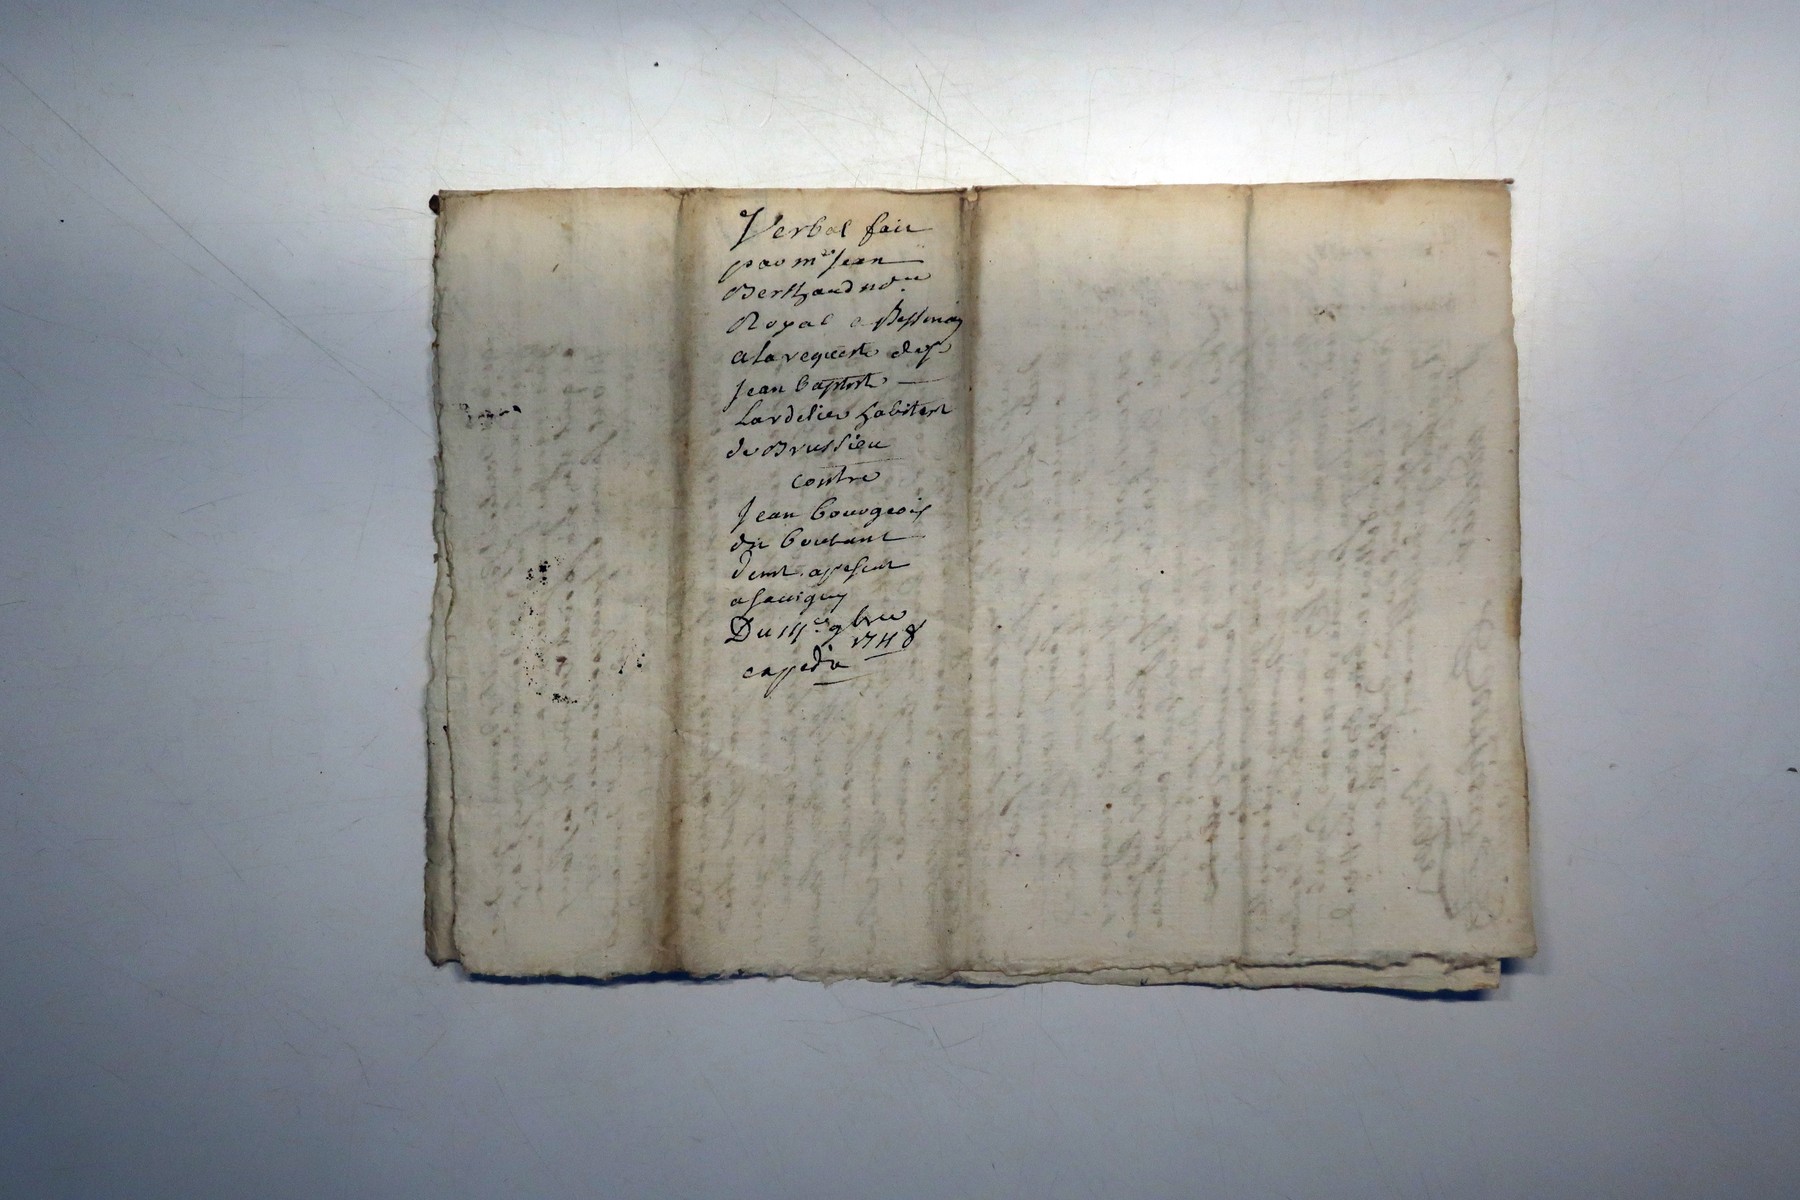 Verbal fait
par me Jean
Berthaud nore
Royal a Bessenay
a la requeste de sr
Jean baptiste
Lardelier habitant
de Brussieu
contre
Jean bourgeois
dit boutant
demt a present
a Savigny
Du 9bre
1748
expedié